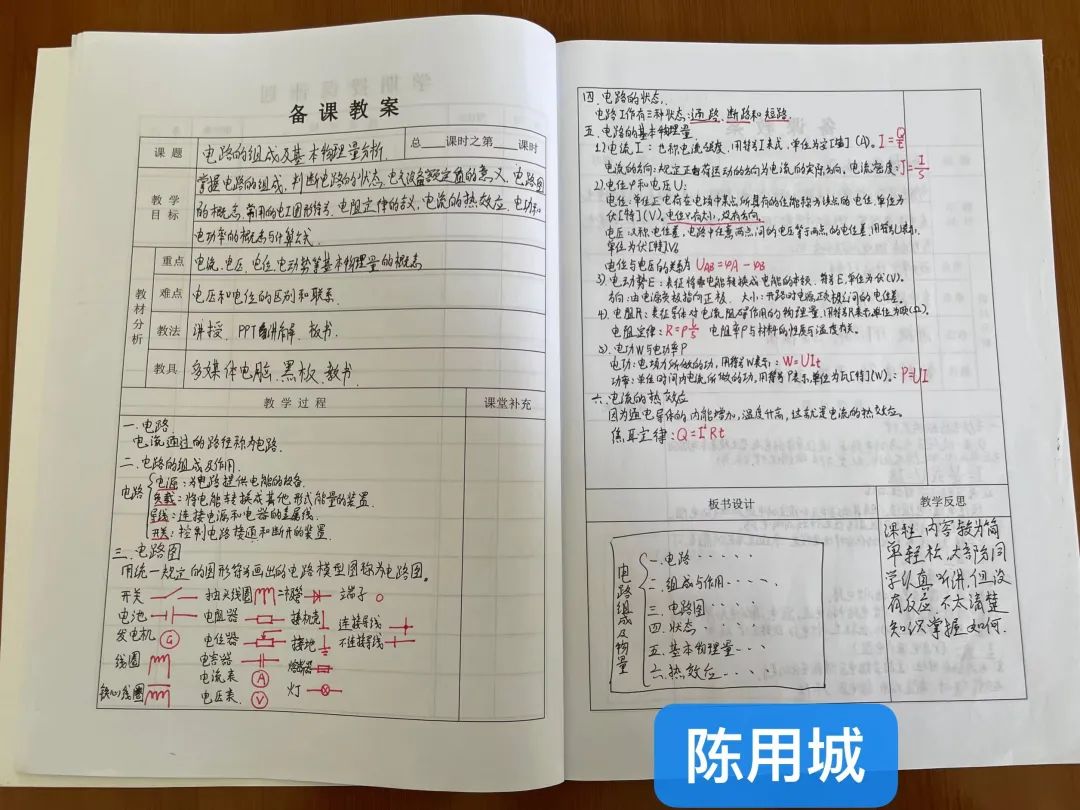 备课教案
课题 电路的组成及基本物理量分析. 总 课时之第 课时
教学目标 掌握电路的组成,判断电路的状态,电气设备额定值的意义,电路图
的概念,常用的电工图形符号,电阻定律的含义,电流的热效应,电功和
电功率的概念与计算公式.
教材分析
重点 电流、电压、电位、电动势等基本物理量的概念
难点 电压和电位的区别和联系.
教法 讲授、PPT 讲解、板书.
教具 多媒体电脑、黑板、教书.
教学过程 课堂补充
一.电路.
电流通过的路径称为电路.
二.电路的组成及作用.
电路
电源:为电路提供电能的设备.
负载:将电能转换成其他形式能量的装置.
导线:连接电源和电器的金属线.
开关:控制电路接通和断开的装置.
三.电路图
用统一规定的图形符号画出的电路模型图称为电路图。
开关 抽头线圈 二极管 端子
电池 电阻器 接机壳 连接导线
发电机 G 电位器 接地 不连接导线
线圈 电容器 熔断器
电流表 A
铁心线圈 电压表 V 灯
四.电路的状态.
电路工作有三种状态:通路、断路和短路.
五.电路的基本物理量
1)电流I:也称电流强度,用符号I表示,单位为安[培](A)。I=Q/t
电流的方向:规定正电荷运动的方向为电流的实际方向,电流密度:J=I/S
2)电位φ和电压U:
电位:单位正电荷在电场中某点所具有的能称为该点的电位.单位为
伏[特](V)。电位只有大小,没有方向。
电压:又称电位差,电路中任意两点间的电压等于两点的电位差,用符号U表示,
单位为伏[特]V。
电位与电压的关系为 UAB=φA-φB
3)电动势E:表征将电能转换成电能的本领.符号E,单位为伏(V)。
方向:由电源负极指向正极. 大小:开路时电源正负极间的电位差.
4)电阻R:表征导体对电流阻碍作用的物理量,用符号R表示,单位为欧(Ω).
电阻定律:R=ρL/S 电阻率ρ与材料的性质与温度有关。
5)电功W与电功率P
电功:电场力所做的功,用符号W表示:W=UIt
功率:单位时间内电流所做的功,用符号P表示,单位为瓦[特](W)。:P=UI
六.电流的热效应
因为通电导体的内能增加,温度升高,这就是电流的热效应。
焦耳定律:Q=I²Rt
板书设计 教学反思
电路组成及物量
一.电路·····
二.组成与作用·····
三.电路图·····
四.状态·····
五.基本物理量···
六.热效应·····
课程内容较为简
单轻松,大部份同
学认真听讲,但没
有反应,不太清楚
知识掌握如何.
陈用城